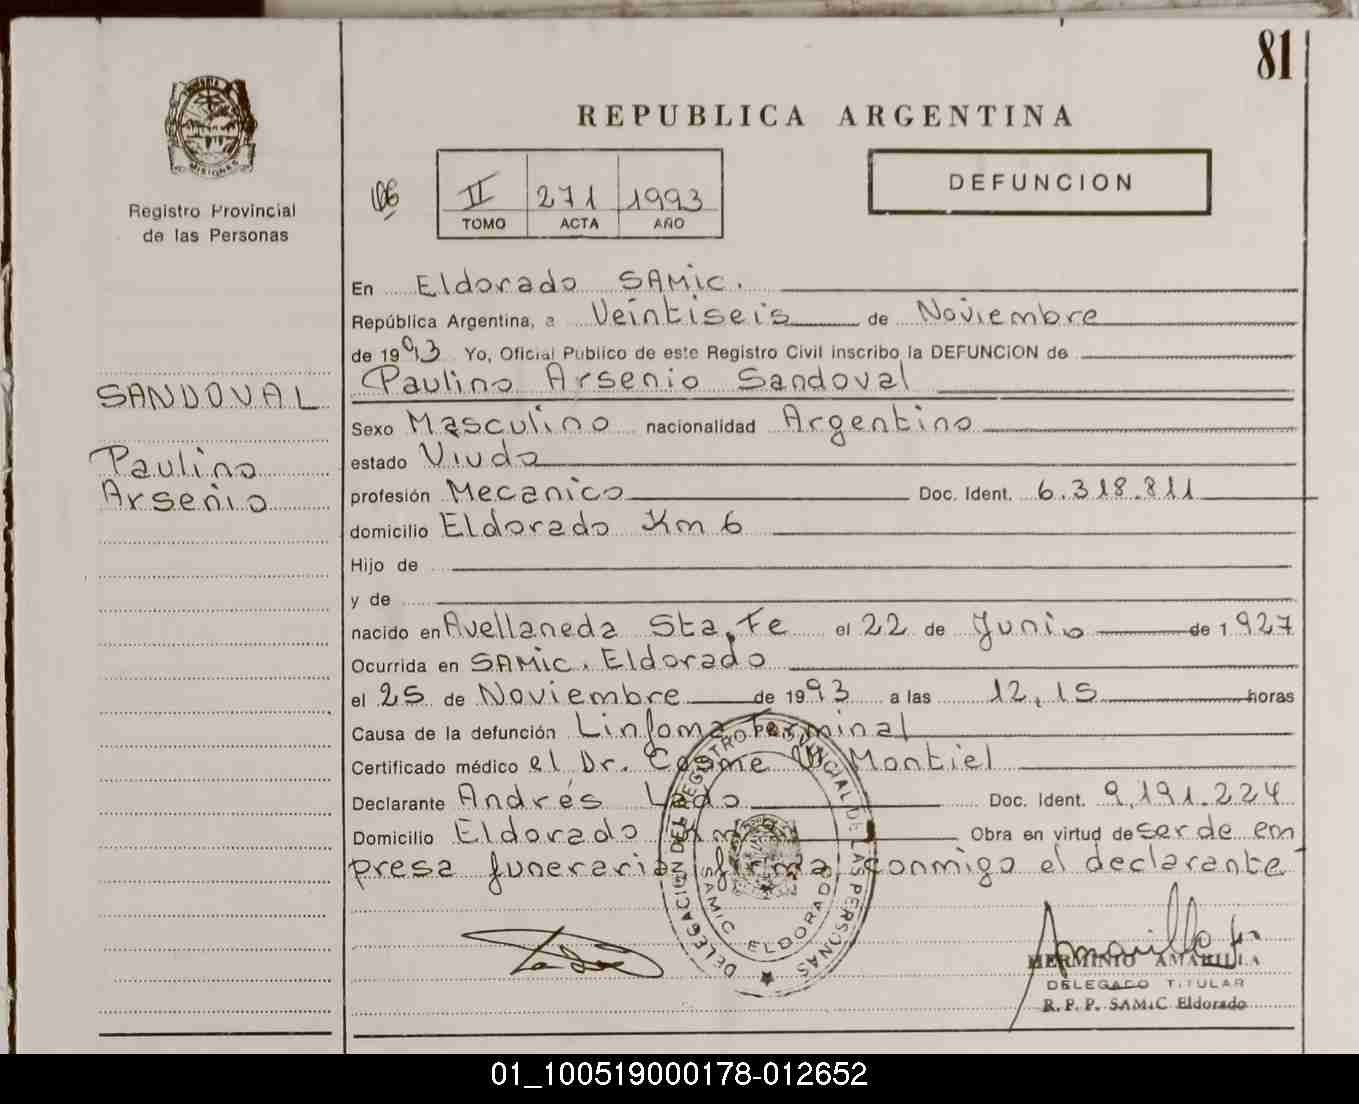 81
MISIONES
Registro Provincial
de las Personas
REPUBLICA ARGENTINA
II 271 1993
TOMO ACTA AÑO
DEFUNCION
SANDOVAL
Paulino
Arsenio
En Eldorado SAMic.
República Argentina, a Veintiseis de Noviembre
de 1993 Yo, Oficial Público de este Registro Civil inscribo la DEFUNCION de
Paulino Arsenio Sandoval
Sexo Masculino nacionalidad Argentino
estado Viudo
profesión Mecanico Doc. Ident. 6.318.811
domicilio Eldorado Km 6
Hijo de
y de
nacido en Avellaneda Sta, Fe el 22 de Junio de 1927
Ocurrida en SAMic. Eldorado
el 25 de Noviembre de 1993 a las 12,15 horas
Causa de la defunción Linfoma terminal
Certificado médico el Dr. Cosme Montiel
Declarante Andrés Doc. Ident. 9,191.224
Domicilio Eldorado Obra en virtud de ser de em
presa funeraria firma conmigo el declarante
DELEGACION DEL REGISTRO PROVINCIAL DE LAS PERSONAS
SAMIC ELDORADO
HERMINIO AMARILLA
DELEGADO TITULAR
R. P. P. SAMiC Eldorado
01_100519000178-012652